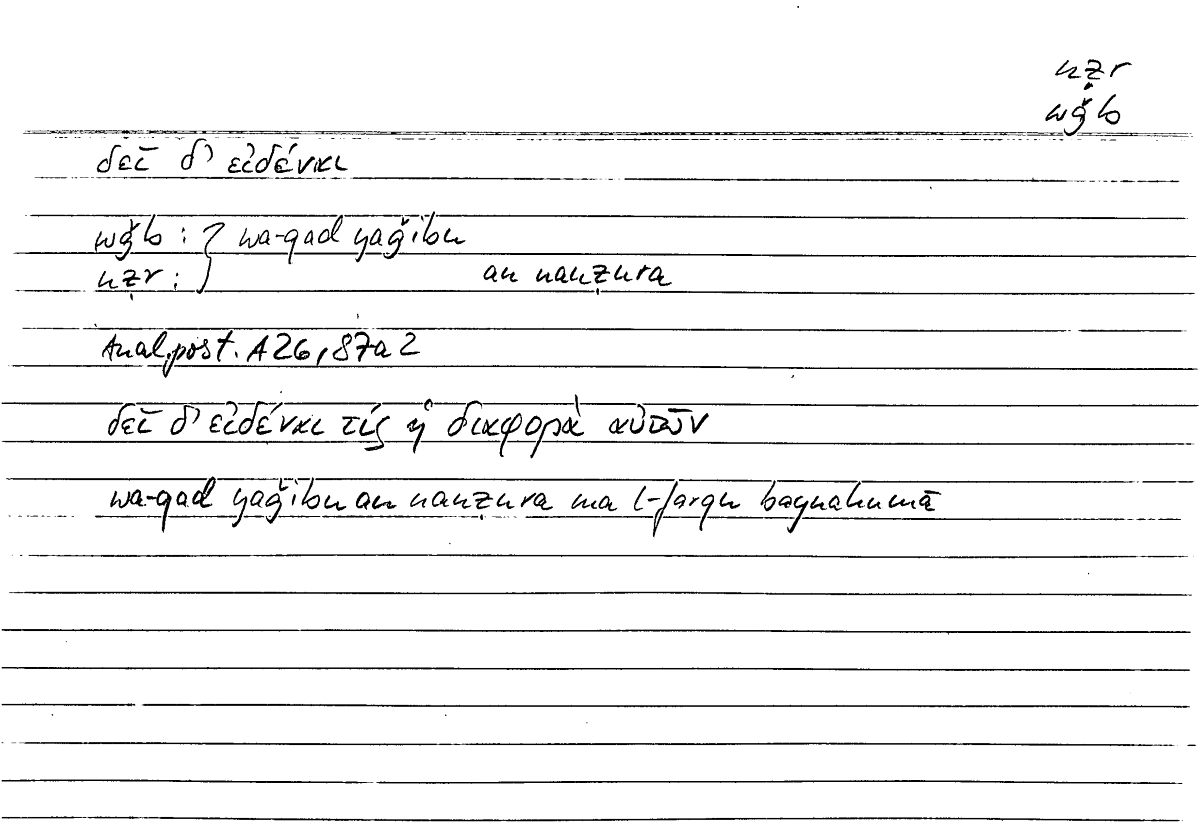 nẓr
wǧb
δεῖ δ' εἰδέναι
wǧb : } wa-qad yaǧibu
nẓr : } an nanẓura
Anal.post. A26, 87a2
δεῖ δ' εἰδέναι τίς ἡ διαφορὰ αὐτῶν
wa-qad yaǧibu an nanẓura ma l-farqu baynahumā